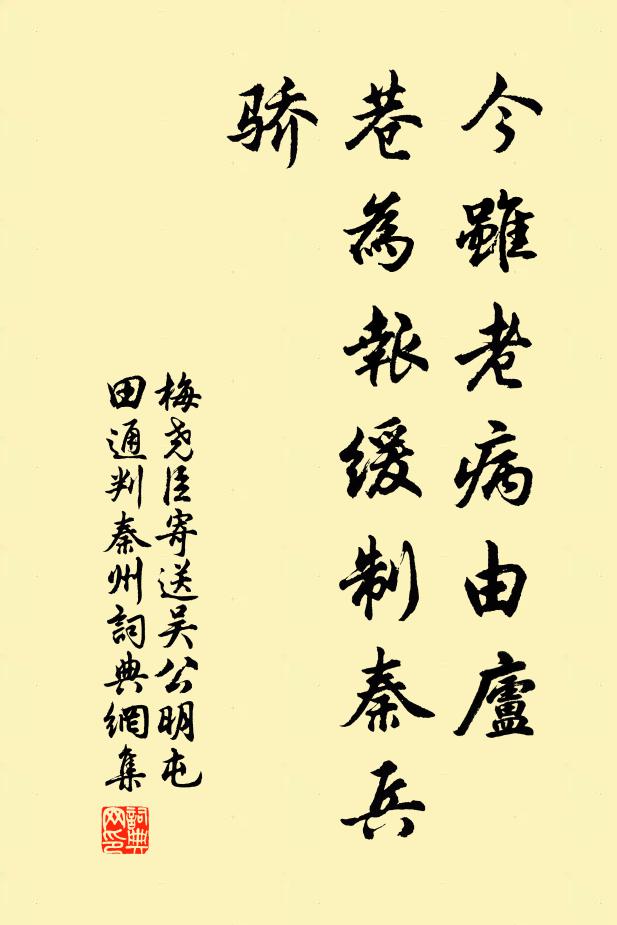 今雖老病由廬
巷為報緩制秦兵
骄
梅堯臣寄送吴公明屯
田通判秦州詞典網集
詞典
网印